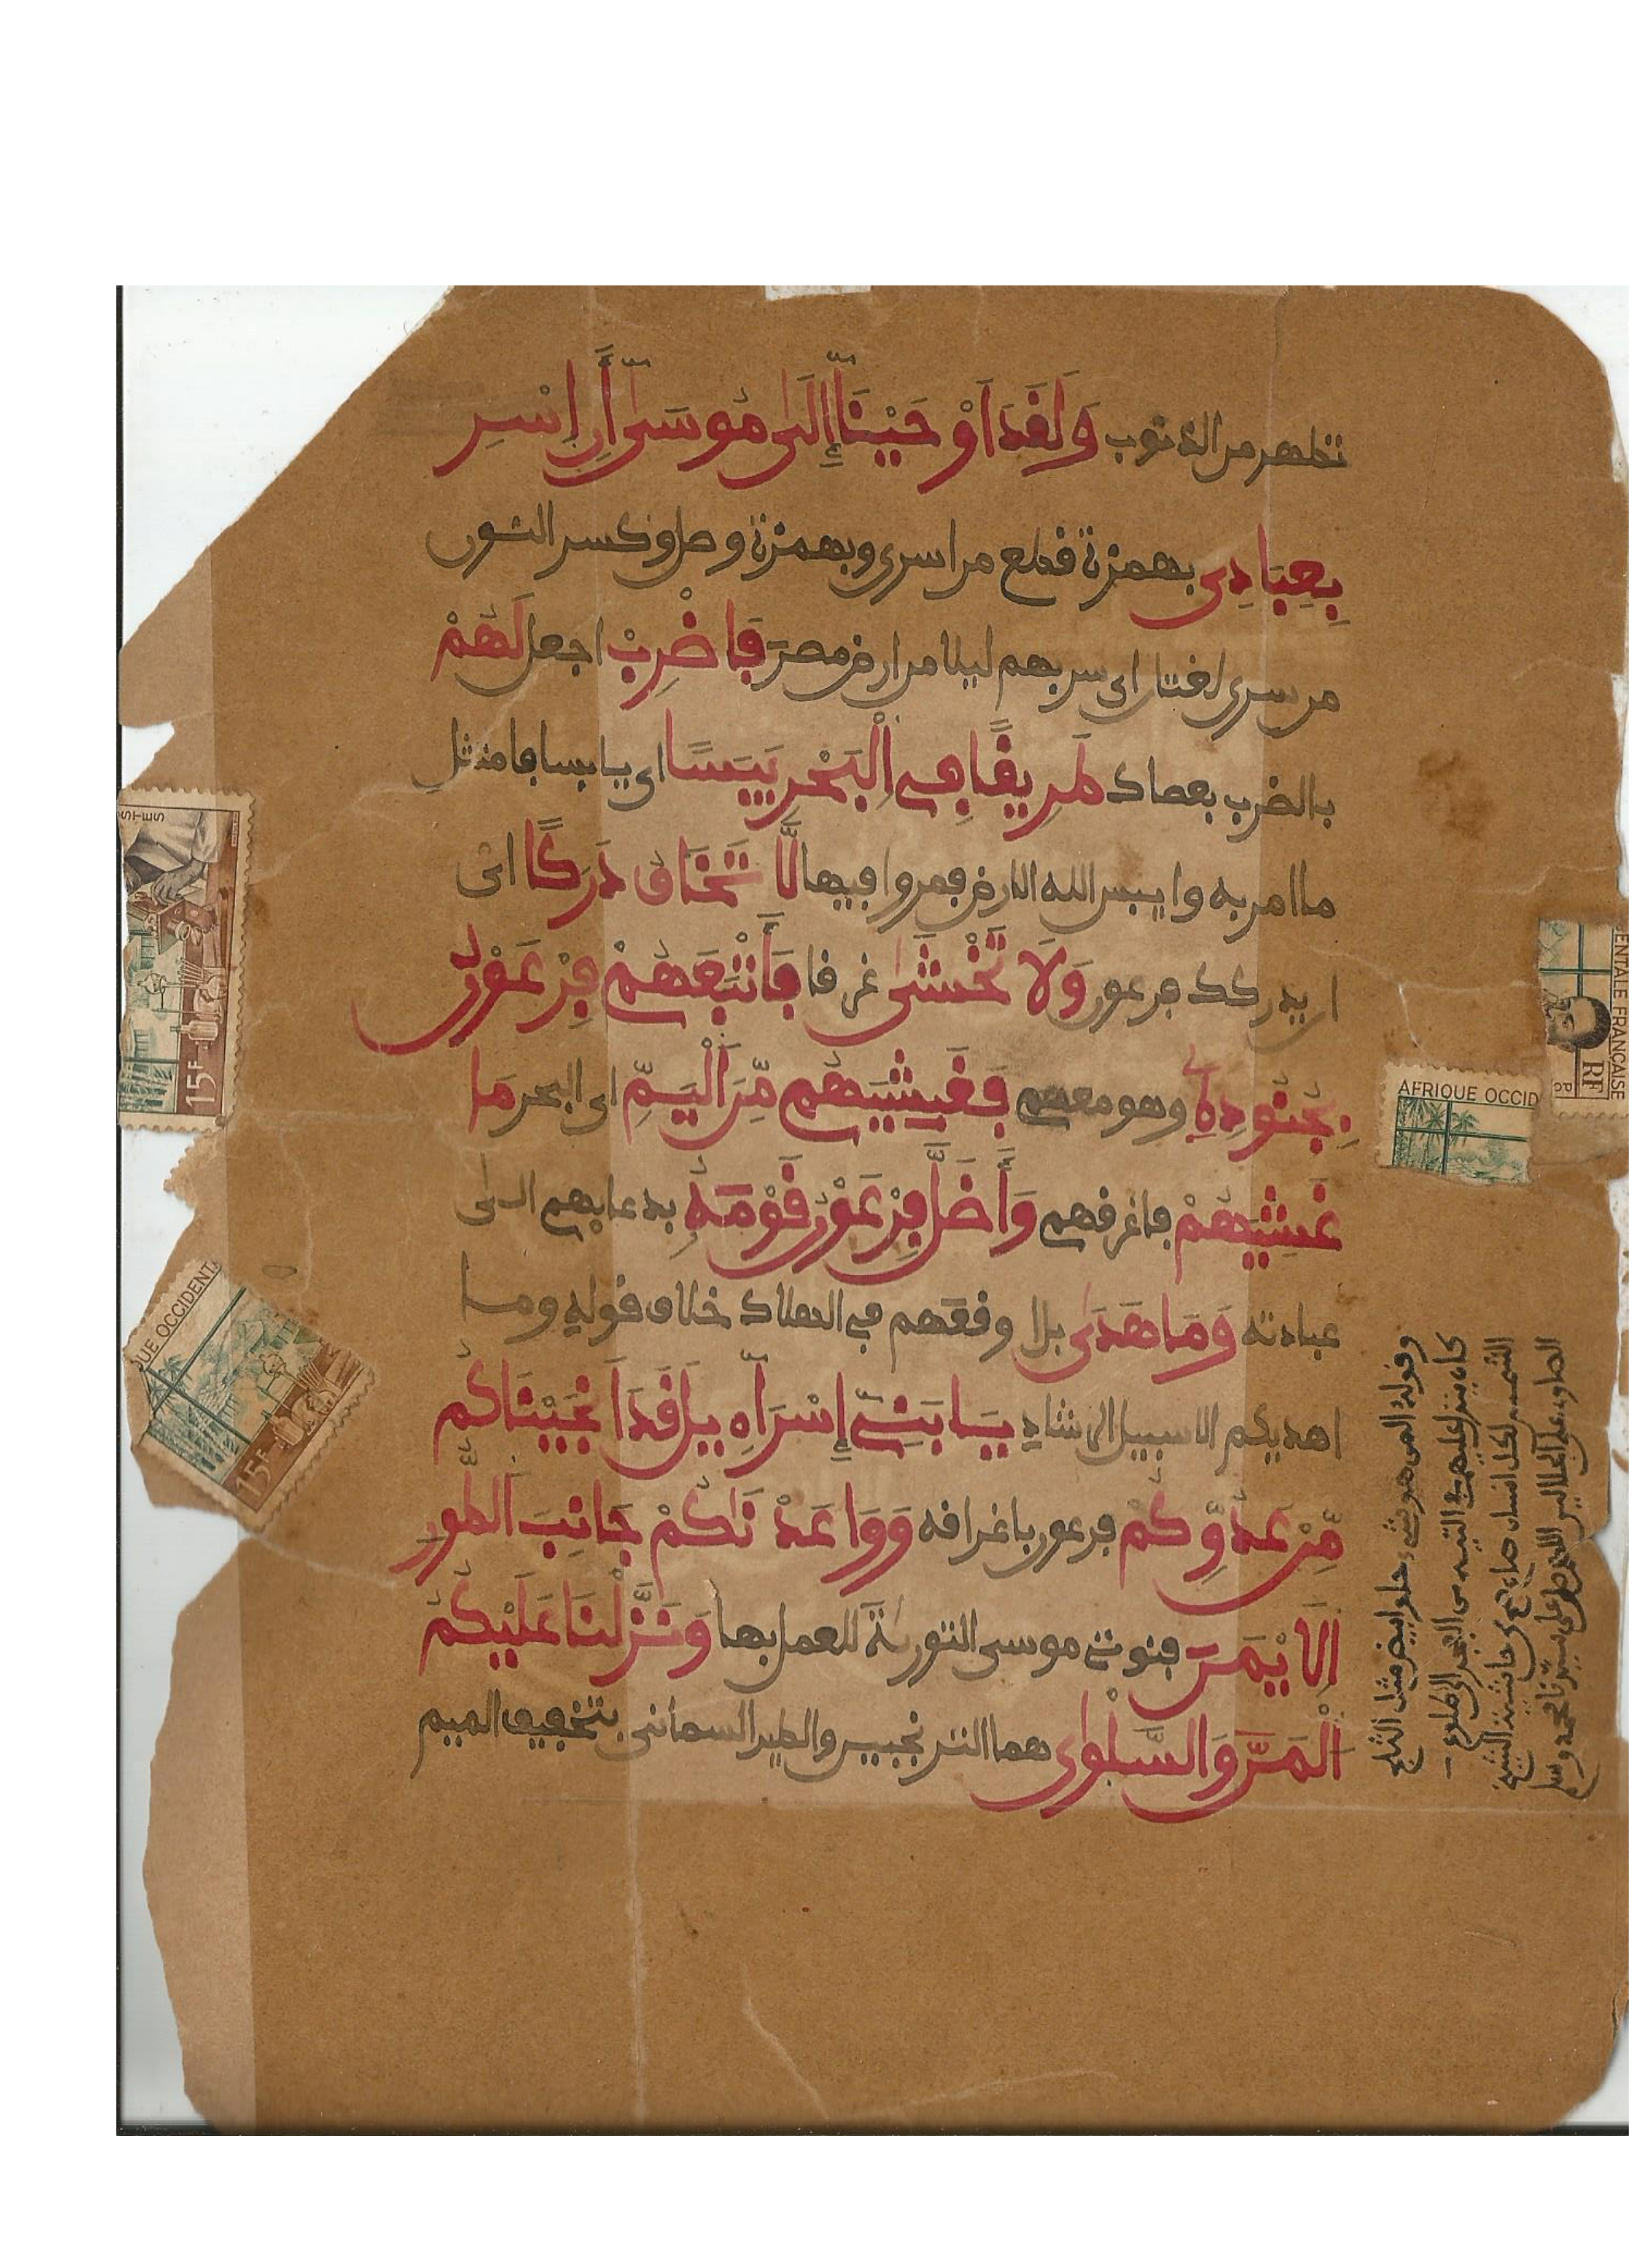 تطهر من الذنوب وَلَقَدَ اَوْحَيْنَآ إِلَىٰ مُوسَىٰٓ أَنِ اِسْرِ
بِعِبَادِى بهمزة قطع من اسرى وبهمزة وصل وكسر النون
من سرى لغتان اى سر بهم ليلا من ارض مصر فَاضْرِبْ اجعل لَهُمْ
بالضرب بعصاك طَرِيقًا فِى اِلْبَحْرِ يَبَسًا اى يابسا فامتثل
ما امر به وايبس الله الارض فمروا فيها لَّا تَخَافُ دَرَكًا اى
ان يدركك فرعون وَلَا تَخْشَىٰ غرقا فَأَتْبَعَهُمْ فِرْعَوْنُ
بِجُنُودِهِ وهو معهم فَغَشِيَهُم مِّنَ اَلْيَمِّ اى البحر مَا
غَشِيَهُمْ فاغرقهم وَأَضَلَّ فِرْعَوْنُ قَوْمَهُ بدعايهم الى
عبادته وَمَا هَدَىٰ بل اوقعهم في الهلاك خلاف قوله وما
اهديكم الا سبيل الرشاد يَـٰبَنِىٓ إِسْرَآءِيلَ قَدَ اَنجَيْنَاكُم
مِّنْ عَدُوِّكُمْ فرعون باغراقه وَوَاعَدْنَـٰكُمْ جَانِبَ اَلطُّورِ
اِلَايْمَنَ فنوتى موسى التورىٰة للعمل بها وَنَزَّلْنَا عَلَيْكُمُ
اُلْمَنَّ وَالسَّلْوٰى هما الترنجبين والطير السمانى بتخفيف الميم
وقوله المن هو شىء حلو ابيض مثل الثلج
كان ينزل عليهم في التيه من الفجر الى طلوع
الشمس لكل انسان صاع حاشية الشيخ
الصاوى على الجلالين
STES
15F
UE OCCIDENTA
15F
ENTALE FRANÇAISE
RF
AFRIQUE OCCID